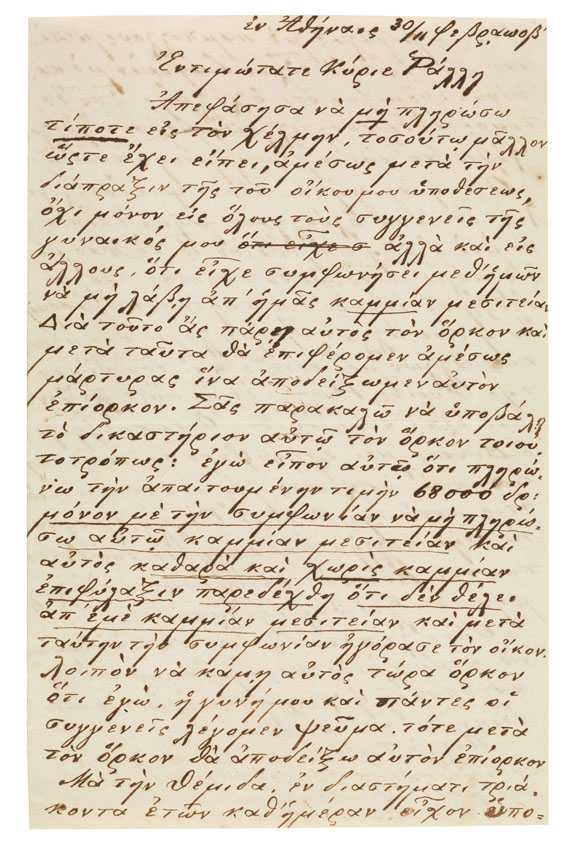 ἐν Ἀθήναις 30/11 Φεβρ. 1872
Ἐντιμώτατε Κύριε Ῥάλλη
Ἀπεφάσησα νὰ μὴ πληρώσω
τίποτε εἰς τὸν Χέλμην, τοσούτω μᾶλλον
ὥςτε ἔχει εἰπει, ἀμέσως μετὰ τὴν
διάπραξιν τῆς τοῦ οἴκου μου ὑποθέσεως,
ὄχι μόνον εἰς ὅλους τοὺς συγγενεῖς τῆς
γυναικός μου ὅτι εἶχε σ ἀλλὰ καὶ εἰς
ἄλλους, ὅτι εἶχε συμφωνήσει μεθ' ἡμῶν
νὰ μὴ λάβῃ ἀπ' ἡμᾶς καμμίαν μεσιτείαν
Διὰ τοῦτο ἂς πάρῃ αὐτὸς τὸν ὅρκον καὶ
μετὰ ταῦτα θὰ ἐπιφέρομεν ἀμέσως
μάρτυρας ἵνα ἀποδείξωμεν αὐτὸν
ἐπίορκον. Σᾶς παρακαλῶ νὰ ὑποβάλῃ
τὸ δικαστήριον αὐτῷ τὸν ὅρκον τοιου
τοτρόπως: ἐγὼ εἶπον αὐτῷ ὅτι πληρώ-
νω τὴν ἀπαιτουμένην τιμὴν 68000 δρ:
μόνον μὲ τὴν συμφωνίαν νὰ μὴ πληρώ-
σω αὐτῷ καμμίαν μεσιτείαν καὶ
αὐτὸς καθαρὰ καὶ χωρὶς καμμίαν
ἐπιφύλαξιν παρεδέχθη ὅτι δὲν θέλει
ἀπ' ἐμὲ καμμίαν μεσιτείαν καὶ μετὰ
ταύτην τὴν συμφωνίαν ἠγόρασε τὸν οἶκον.
λοιπὸν νὰ καμη αὐτὸς τώρα ὅρκον
ὅτι ἐγὼ, ἡ γυνή μου καὶ πάντες οἱ
συγγενεῖς λέγομεν ψεῦμα. τότε μετὰ
τὸν ὅρκον θὰ ἀποδείξω αὐτὸν ἐπίορκον
Μὰ τὴν Θέμιδα, ἐν διαστήματι τριά-
κοντα ἐτῶν καθ' ἡμέραν εἶχον ὑπο-